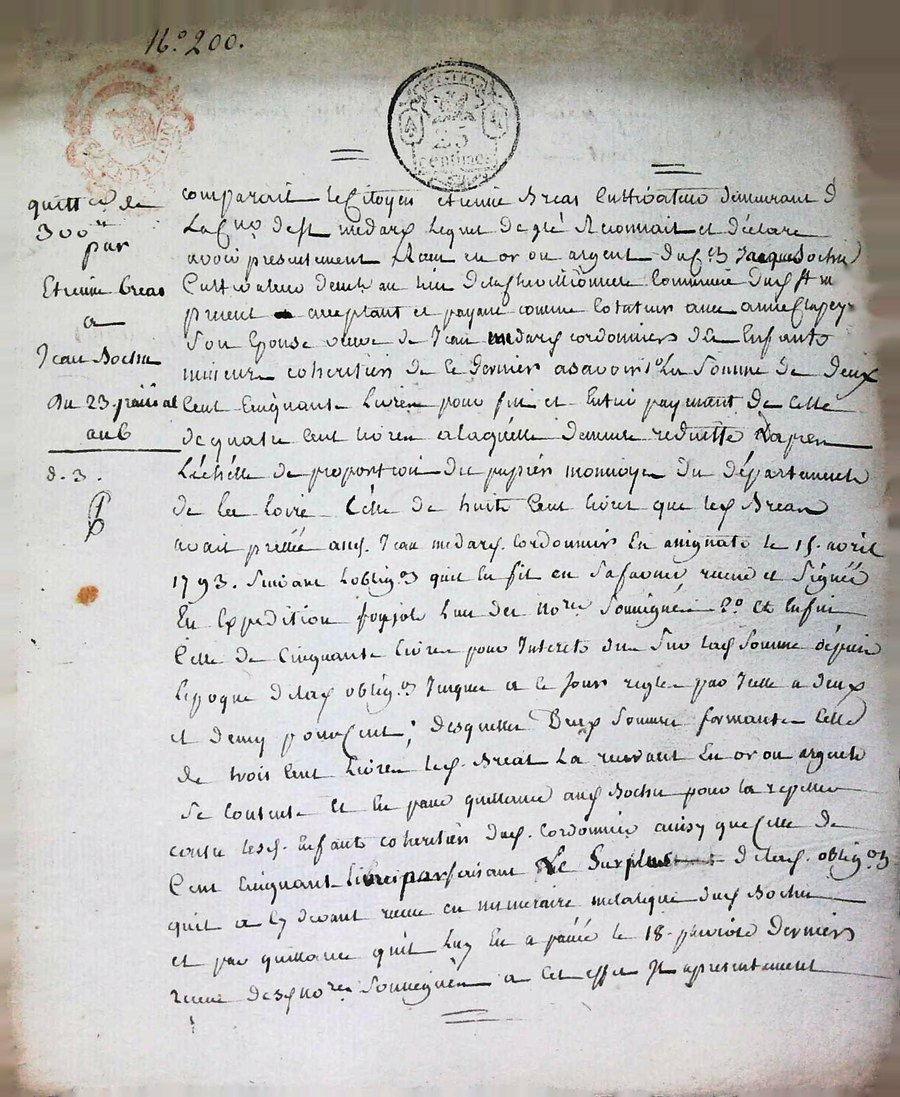 N.º 200.
REP. FRA
25
centimes
quitt de
300 ₶
par
Etienne breas
a
Jean Bochu
du 23 prairial
an 6
d. 3.
comparait le Citoyen etienne Breas Cultivateur demeurant
La de St medard Lequel de gré Reconnait et déclare
avoir presentement Reçu en or ou argent du Jacque Bochu
Cultivateur demt au lieu Commune dud St m
present acceptant et payant comme cotuteur avec anne
Son Epouse veuve de Jean medard cordonnier des Enfants
mineurs coheritiers de ce dernier asavoir 1.º La Somme de deux
Cent Cinquante Livres pour fin et Entier payement de Celle
de quatre Cent livres a laquelle demeure reduitte D'apres
L'échélle de proportion du papier monnoye du départements
de la loire Célle de huite Cent livres que led Breas
avait prettée aud. Jean medard. Cordonnier En assignats le 15. avril
1793. Suivant L'oblig.on quil En fit en Safaveur recue et Signée
En Expedition foujols L'un des No.res Soussignés 2.º Et Enfin
Celle de Cinquante livres pour Interets de Sur lad Somme depuis
L'epoque de lad oblig.on Jusques a ce Jour reglés par Icelle a deux
et demy pour Cent; desquelles Deux Sommes formants Celle
de trois Cent Livres led. Breas La recevant En or ou argents
Se Contente Et En passe quittance aud Bochu pour la repeter
contre lesd. Enfants coheritiers dud. Cordonnier aussy que Celle de
Cent Cinquante livres parfaisant Le Surplus de lad. oblig.on
quil a Cy devant recue en numeraire metalique dud Bochu
et par quittance quil Luy En a passée le 18. pluviose Dernier
recue desd No.res Soussignés a Cet effet Jt apresentement